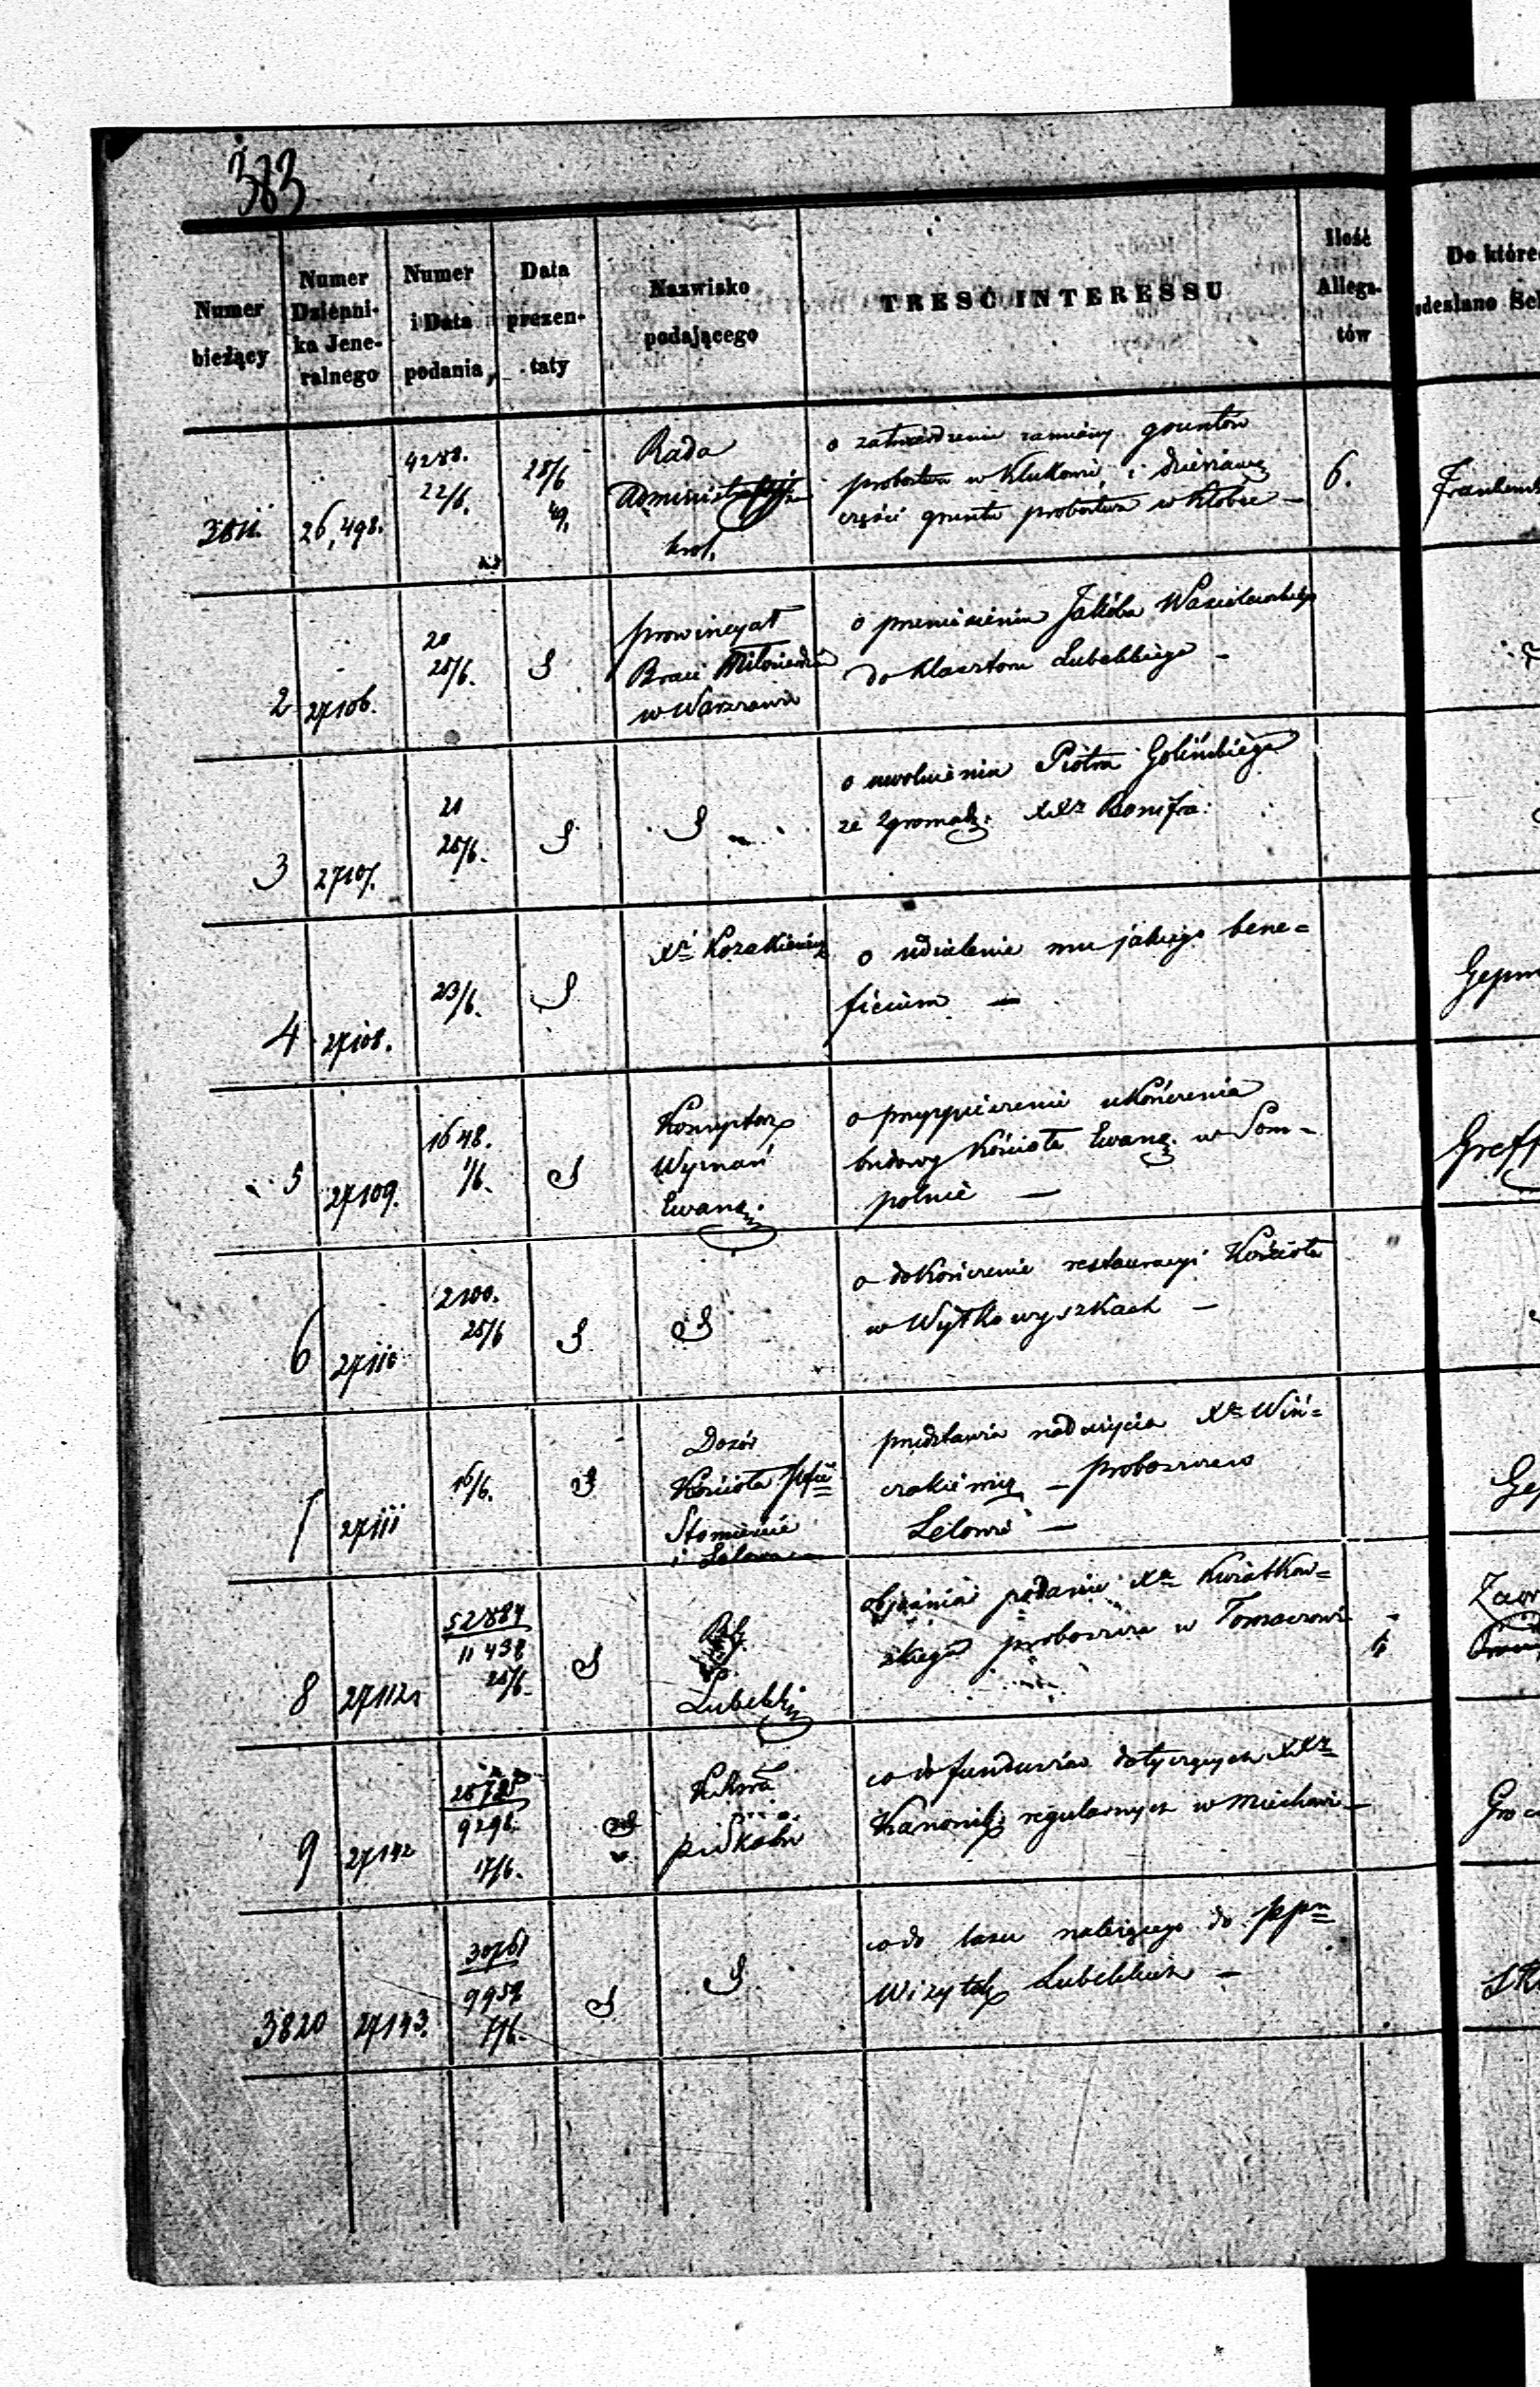 383
Numer bieżący
Numer Dzienni- ka Jene- ralnego
Numer i Data podania,
Data prezen- taty
Nazwisko podającego
TREŚĆ INTERESSU
Ilość Allega- tów
Do które
odesłano
3811. 26,498. 4288. 22/6. 28/6 49. Rada
o zatwierdzenie zamiany gruntów
probostwa w Klukowie, i dzierżawę
części gruntu probostwa w Kłobce –
6.
2 27106. 20 25/6. prowincyał
Braci Miłosierdzia
w Warszawie
o przeniesienie Jakóba Wasilewskiego
do Klasztoru Lubelskiego –
3 27107. 21 25/6.
o uwolnienie Piotra Golińskiego
ze Zgromadz. XXzy Bonifra:
4 27108. 23/6. Xdz Kozakiewicz
o udzielenie mu jakiego bene=
ficium –
5 27109. 1648. 1/6.
Wyznań
Ewang.
o przyspieszenie ukończenia
budowy Kościoła Ewang. w Som-
polnie –
6 27110 2100. 25/6
o dokończenie restauracyi Kościoła
w Wyłkowyszkach –
7 27111 16/6. Dozór
Kościoła
i Lelowa
przedstawia nadużycia Xdza Win=
czakiewicz – proboszcza
Lelowie –
8 27112 52884 11438 25/6.
Lubelski
objaśnia podanie Xdza Kwiatkow=
skiego proboszcza w Tomaszowie
9 27142 9296. 17/6.
co do funduszów dotyczących XXzy
Kanonik. regularnych w Miechowie –
3820 27143. 30761 9959
co do lasu należącego do ppn
Wizytek Lubelskich –